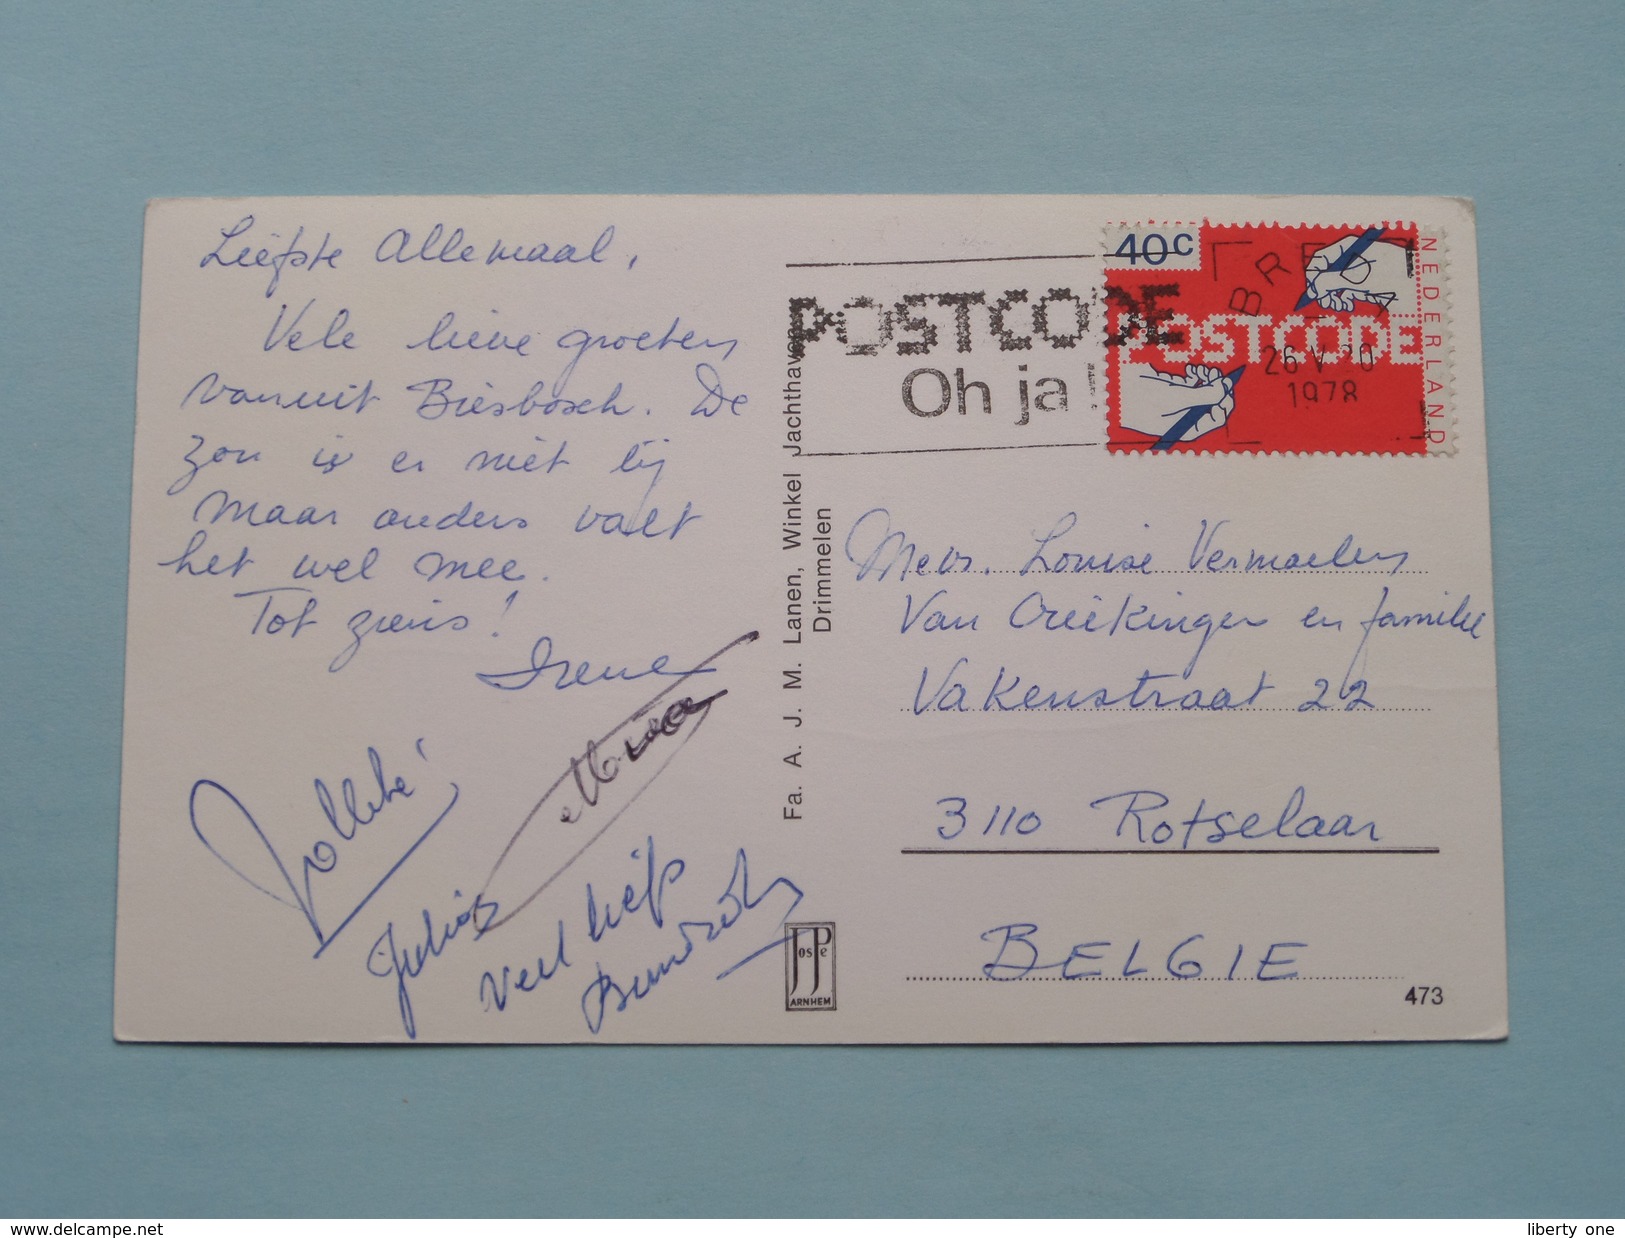 Liefste Allemaal,
Vele lieve groeten
vanuit Biesbosch. De
zon is er niet bij
maar anders valt
het wel mee.
Tot ziens!
Irene
Julia
Veel liefs
POSTCODE
Oh ja
40c
NEDERLAND
POSTCODE
BREDA
26.V.20
1978
Fa. A. J. M. Lanen, Winkel Jachthaven
Drimmelen
Mevr. Louise Vermaelen
Van Criekingen en familie
Vakenstraat 22
3110 Rotselaar
BELGIE
JosPe
ARNHEM
473
www.delcampe.net
liberty one